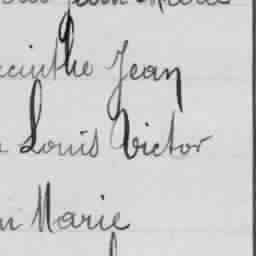 cinthe Jean
Louis Victor
Marie